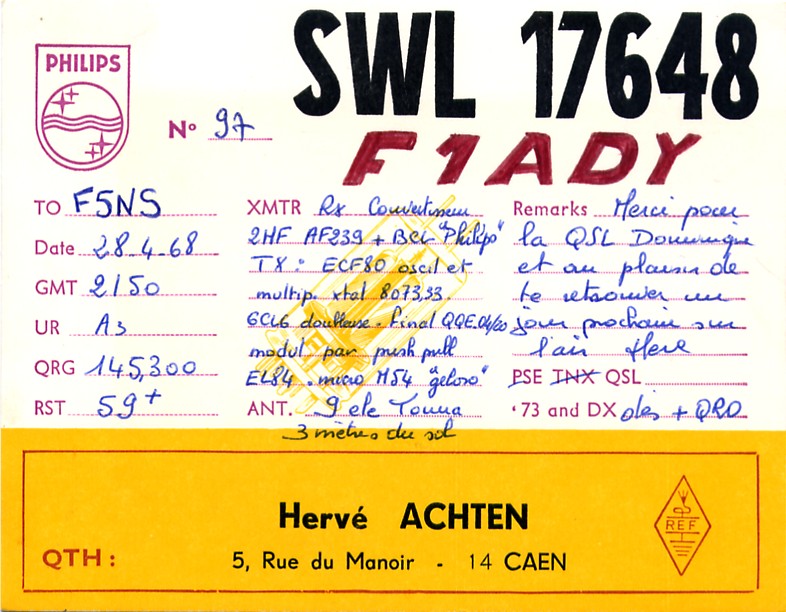 SWL 17648
PHILIPS
N° 97
F1ADY
TO F5NS
Date 28.4.68
GMT 2150
UR A3
QRG 145,300
RST 59+
XMTR Rx Convertisseur
2HF AF239 + BCL "Philips"
TX : ECF80 oscil et
multip. xtal 8073,33.
6CL6 doubleuse. Final QQE.04/20
modul par push pull
EL84. micro M54 "geloso"
ANT. 9 ele Tonna
3 mètres du sol
Remarks Merci pour
la QSL Dominique
et au plaisir de
te retrouver un
jour prochain sur
l'air
PSE TNX QSL
73 and DX + QRO
Hervé ACHTEN
QTH :
5, Rue du Manoir - 14 CAEN
REF